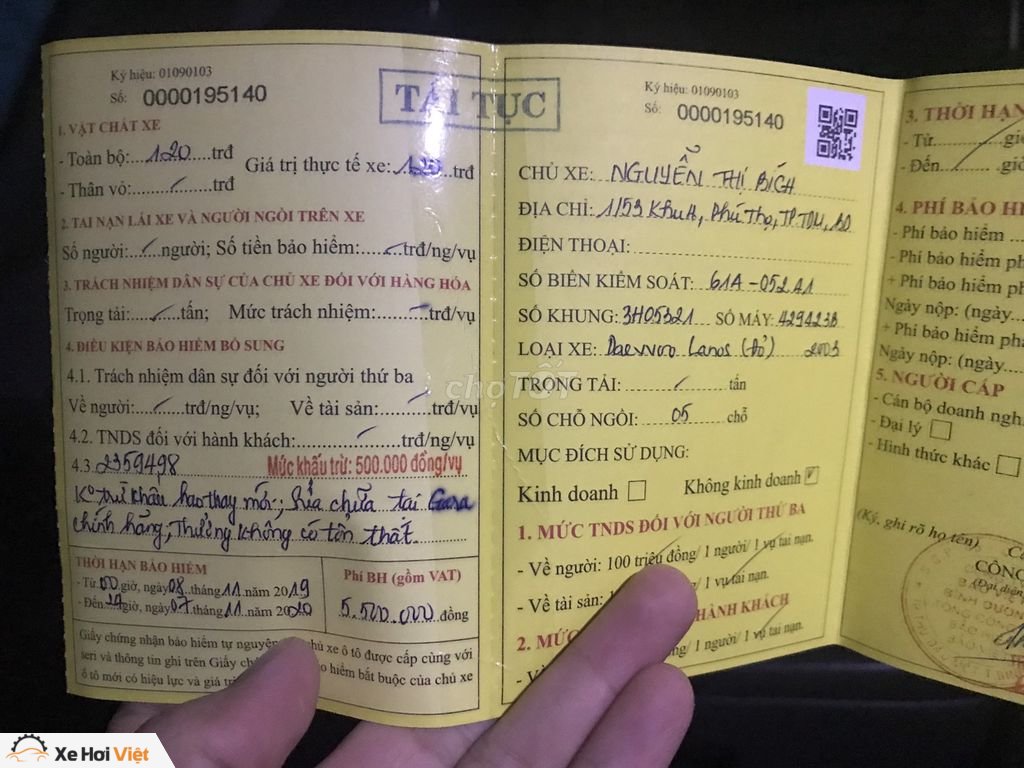 Ký hiệu: 01090103
Số: 0000195140
TÁI TỤC
1. VẬT CHẤT XE
- Toàn bộ: 120 trđ Giá trị thực tế xe: 120 trđ
- Thân vỏ: trđ
2. TAI NẠN LÁI XE VÀ NGƯỜI NGỒI TRÊN XE
Số người: người; Số tiền bảo hiểm: trđ/ng/vụ
3. TRÁCH NHIỆM DÂN SỰ CỦA CHỦ XE ĐỐI VỚI HÀNG HÓA
Trọng tải: tấn; Mức trách nhiệm: trđ/vụ
4. ĐIỀU KIỆN BẢO HIỂM BỔ SUNG
4.1. Trách nhiệm dân sự đối với người thứ ba
Về người: trđ/ng/vụ; Về tài sản: trđ/vụ
4.2. TNDS đối với hành khách: trđ/ng/vụ
4.3 2359498 Mức khấu trừ: 500.000 đồng/vụ
Ko trừ khấu hao thay mới; Sửa chữa tại Gara
chính hãng, Thưởng không có tổn thất.
THỜI HẠN BẢO HIỂM
- Từ 00 giờ, ngày 08 tháng 11 năm 2019
- Đến 24 giờ, ngày 07 tháng 11 năm 2020
Phí BH (gồm VAT)
5.500.000 đồng
Giấy chứng nhận bảo hiểm tự nguyện chủ xe ô tô được cấp cùng với
seri và thông tin ghi trên Giấy bảo hiểm bắt buộc của chủ xe
ô tô mới có hiệu lực và giá trị
Ký hiệu: 01090103
Số: 0000195140
CHỦ XE: NGUYỄN THỊ BÍCH
ĐỊA CHỈ: 1/53 Khu 4, Phú Thọ, TP TDM, BD
ĐIỆN THOẠI:
SỐ BIỂN KIỂM SOÁT: 61A-052.41
SỐ KHUNG: 3H05321 SỐ MÁY: 429423B
LOẠI XE: Daewoo Lanos (Đỏ) 2003
TRỌNG TẢI: tấn
SỐ CHỖ NGỒI: 05 chỗ
MỤC ĐÍCH SỬ DỤNG:
Kinh doanh Không kinh doanh
1. MỨC TNDS ĐỐI VỚI NGƯỜI THỨ BA
- Về người: 100 triệu đồng/ 1 người/ 1 vụ tai nạn.
- Về tài sản: 1 vụ tai nạn.
2. MỨC HÀNH KHÁCH
1 người/ 1 vụ tai nạn.
3. THỜI HẠN
- Từ giờ
- Đến giờ
4. PHÍ BẢO
- Phí bảo hiểm
- Phí bảo hiểm
+ Phí bảo hiểm
Ngày nộp: (ngày
+ Phí bảo hiểm
Ngày nộp: (ngày
5. NGƯỜI CẤP
- Cán bộ doanh
- Đại lý
- Hình thức khác
(Ký, ghi rõ họ tên)
CÔNG
(Đại diện
BÌNH DƯƠNG
TỔNG CÔNG
chợTỐT
Xe Hơi Việt